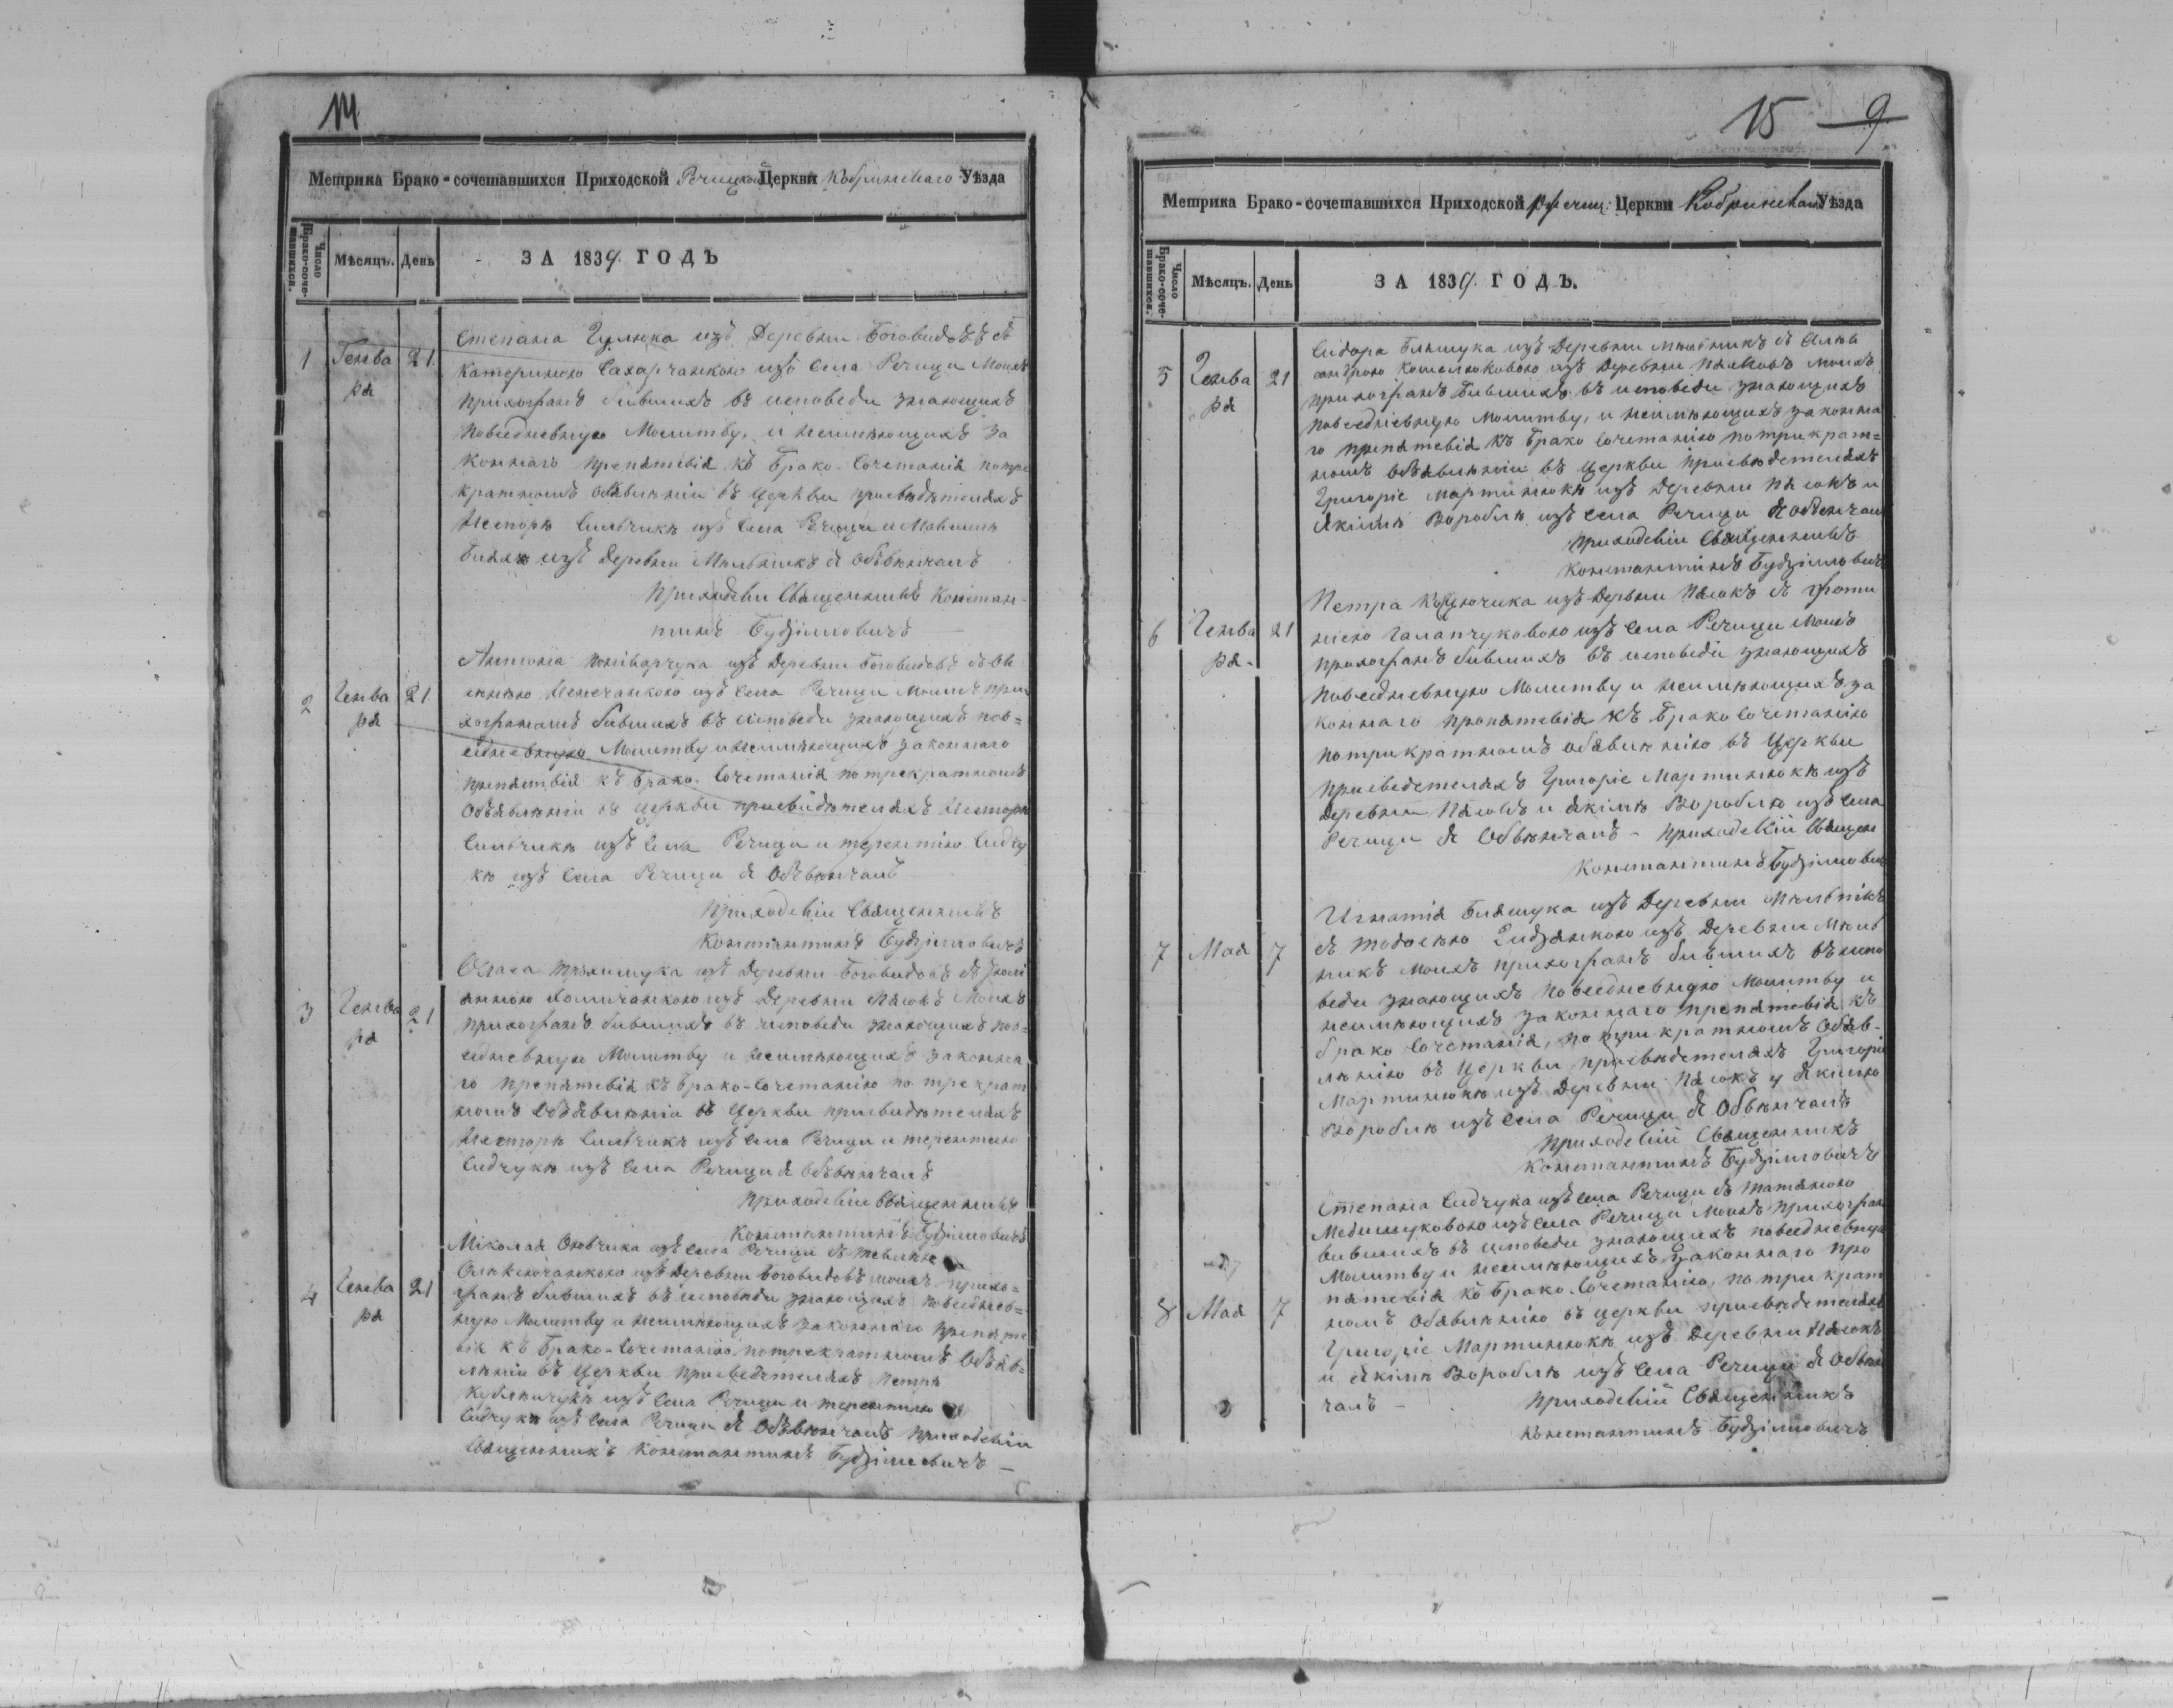 14
Метрика Брако-сочетавшихся Приходской Речицкой Церкви Кобринского Уѣзда
Число Брако-сочетавшихся.
Мѣсяцъ.
День
ЗА 1834 ГОДЪ
1 Генваря 21
Степана из Деревни Боговидовъ съ
Катериною Сахарчанкою изъ Села Речици Моихъ
прихожранъ бывшихъ въ исповеди знающихъ
повседневную Молитву, и неимѣющихъ за
коннаго препятсвія къ Брако-Сочетанія потре
кратномъ объявлѣніи въ Церкви присвидѣтеляхъ
Несторѣ Сильчикѣ изъ Села Речици и
изъ Деревни Мельникъ Я Объвѣнчалъ
Приходскіи Священникъ Констан-
тинъ Будзіловичъ
2 Генваря 21
Антона изъ Деревни Боговидовъ съ
изъ Села Речици Моихъ при
хожранъ бывшихъ въ исповеди знающихъ пов-
седневную Молитву и неимѣющихъ законнаго
препятствія къ Брако-Сочетанія потрекратномъ
Объявлѣніи въ Церкви присвидѣтеляхъ Несторѣ
Сильчикѣ изъ Села Речици и терентію Сидчу
кѣ изъ Села Речици Я Объвѣнчалъ
Приходскіи Священникъ
Константинъ Будзіловичъ
3 Генваря 21
изъ Деревни Боговидовъ съ Юлі
анною изъ Деревни Пясокъ Моихъ
прихожранъ бывшихъ въ исповеди знающихъ пов-
седневную Молитву и неимѣющихъ законна
го препятсвія къ Брако-Сочетанію по трекрат
номъ Объявлѣніи въ Церкви присвидѣтеляхъ
Несторѣ Сильчикѣ изъ Села Речици и терентию
Сидчукѣ изъ Села Речици Я объвѣнчалъ
Приходскіи Священникъ
Константинъ Будзіловичъ
4 Генваря 21
Міколая изъ Села Речици съ
изъ Деревни Боговидовъ моихъ прихо-
жранъ бывшихъ въ исповѣди знающихъ повседнев-
ную Молитву и неимѣющихъ законнаго препятс
вія къ Брако-Сочетанію, потрекратномъ Объяв-
лѣніи въ Церкви присведѣтеляхъ Петрѣ
изъ Села Речици и терентию
Сидчукѣ изъ Села Речици Я Объвѣнчалъ Приходскіи
Священникъ Константинъ Будзіловичъ
15 9
Метрика Брако-сочетавшихся Приходской Речиц. Церкви Кобринской Уѣзда
Число Брако-сочетавшихся.
Мѣсяцъ.
День
ЗА 1834 ГОДЪ.
5 Генваря 21
Сидора Бляшука изъ Деревни Мельникъ съ Алек
сандрою изъ Деревни Пясковъ моихъ
прихожранъ Бывшихъ въ исповеди знающихъ
повседневную молитву, и неимѣющихъ законна
го препятсвія къ Брако Сочетанію потрикрат-
номъ объявлѣніи въ Церкви присвѣдетеляхъ
Григоріе Мартинюкѣ изъ Деревни Пясокъ и
Якімѣ Вороблѣ изъ Села Речици Я Обвенчалъ
Приходскіи Священникъ
Константінъ Будзіловичъ
6 Генваря 21
Петра изъ Дервни Пясокъ съ Фоти
ніею Галапчуковою изъ Села Речици Моихъ
прихожранъ бывшихъ въ исповеди знающихъ
повседневную Молитву и неимѣющихъ за
коннаго препятсвія къ Брако Сочетанію
потрикратномъ обявлѣнію въ Церкви
присведетеляхъ Григоріе Мартинюкѣ изъ
Деревни Пясокъ и Якімѣ Вороблю изъ Села
Речици Я Обвѣнчалъ - Приходскій Священ
Константинъ Будзіловичъ
7 Мая 7
Игнатія Бляшука изъ Деревни Мѣльникъ
съ изъ Деревни Мѣль
никъ Моихъ прихожранъ бывшихъ въ испо
веди знающихъ повседневную Молитву и
неимѣющихъ законнаго препятсвія къ
брако Сочетанія, по трикратномъ Обяв-
лѣнію въ Церкви присвѣдетеляхъ Григоріе
Мартинюкѣ изъ Деревни Пясокъ и Якимю
Вороблѣ изъ Села Речици Я Обвѣнчалъ
Приходскій Священникъ
Константинъ Будзіловичъ
8 Мая 7
Степана Сидчука изъ Села Речици съ татяною
изъ Села Речици Моихъ прихожранъ
бившихъ въ исповеди знающихъ повседневную
Молитву и неимѣющихъ законнаго пре
пятсвія къ Брако-Сочетанію, по трикрат
номъ Обявлѣнію въ Церкви присвѣдетеляхъ
Григоріе Мартинюкѣ изъ Деревни Пясокъ
и Якімѣ Вороблѣ изъ Села Речици Я Обвѣн
чалъ - Приходскій Священникъ
Константинъ Будзіловичъ